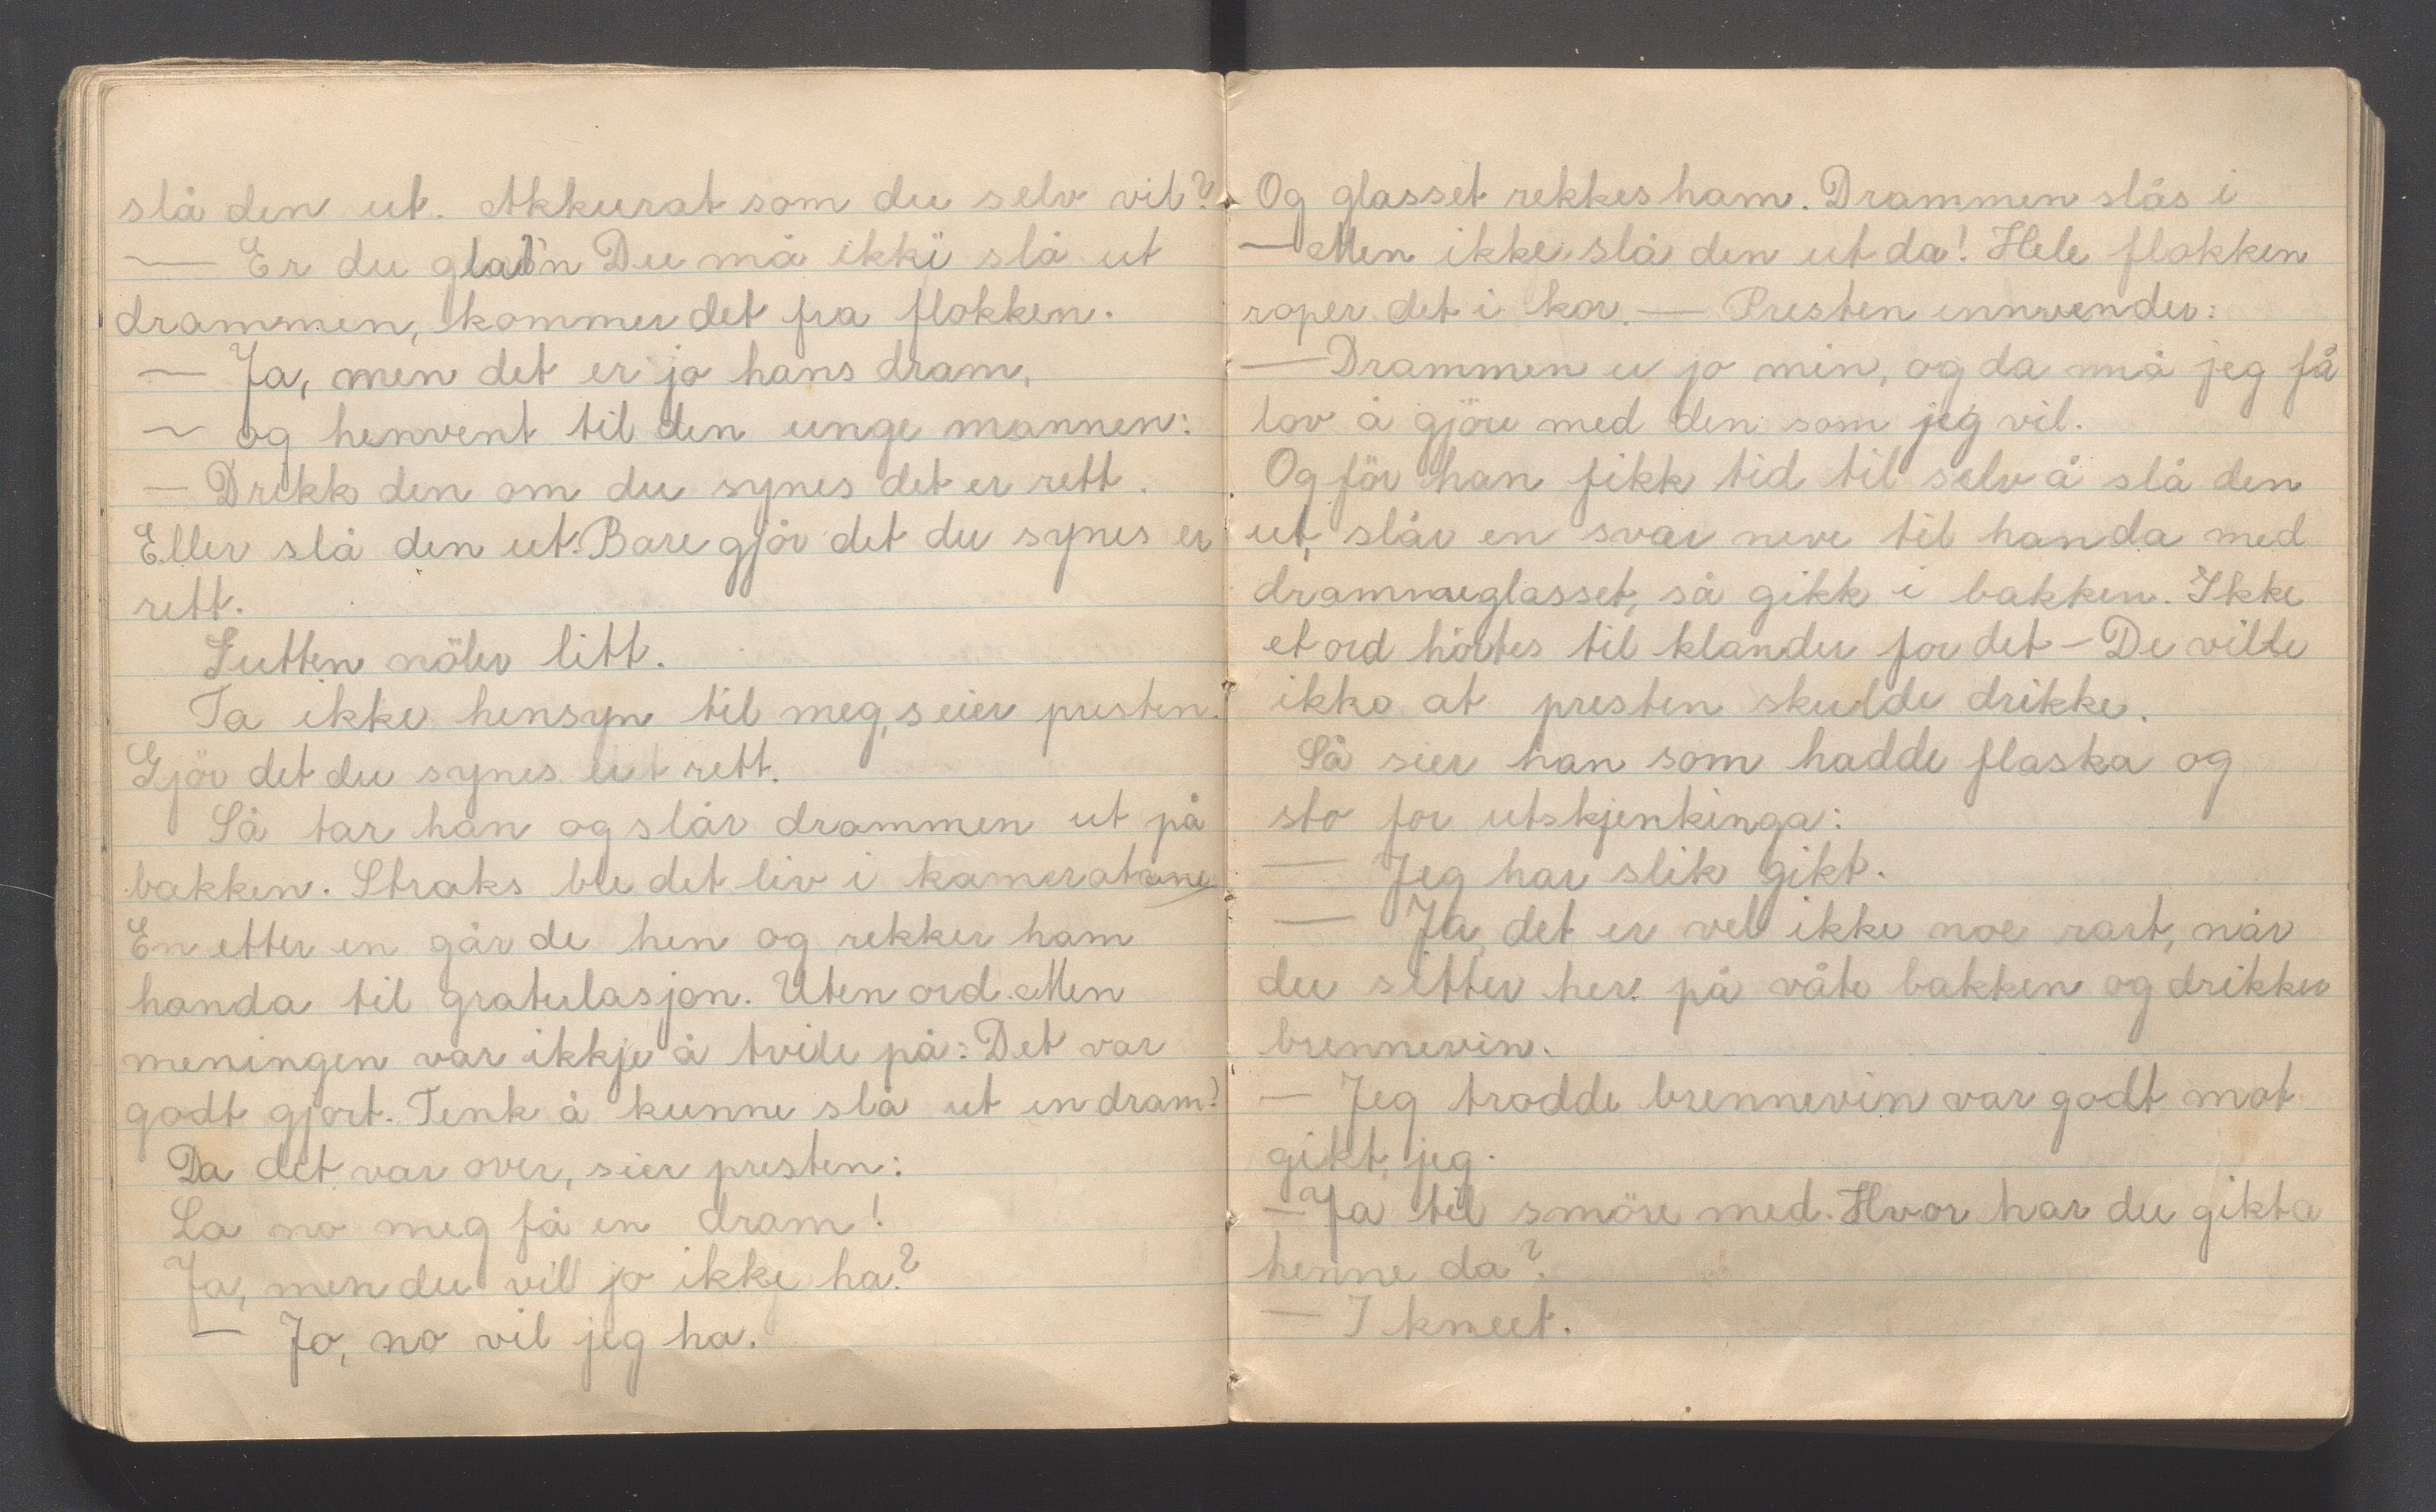 slå den ut. Akkurat som du selv vil?
— Er du gla'n Du må ikki slå ut
drammen, kommer det fra flokken.
— Ja, men det er jo hans dram,
~ og henvent til den unge mannen:
— Drikk den om du synes det er rett.
Eller slå den ut. Bare gjör det du synes er
rett.
Gutten nöler litt.
Ta ikke hensyn til meg, seier presten.
Gjör det du synes er rett.
Så tar han og slår drammen ut på
bakken. Straks ble det liv i kameratene
En etter en går de hen og rekker ham
handa til gratulasjon. Uten ord. Men
meningen var ikkje å tvile på: Det var
godt gjort. Tenk å kunne slå ut en dram?
Da det var over, sier presten:
La no meg få en dram!
Ja, men du vill jo ikke ha?
— Jo, no vil jeg ha.
Og glasset rekkes ham. Drammen slås i
— Men ikke slå den ut da! Hele flokken
roper det i kor. — Presten innvender:
— Drammen er jo min, og da må jeg få
lov å gjöre med den som jeg vil.
Og för han fikk tid til selv å slå den
ut, slår en svær neve til handa med
drammeglasset, så gikk i bakken. Ikke
et ord hörtes til klander for det — De ville
ikke at presten skulde drikke.
Så sier han som hadde flaska og
sto for utskjenkinga:
— Jeg har slik gikt.
— Ja, det er vel ikke noe rart, når
du sitter her på våte bakken og drikker
brennevin.
— Jeg trodde brennevin var godt mot
gikt, jeg.
— Ja til smöre med. Hvor har du gikta
henne da?
— I kneet.